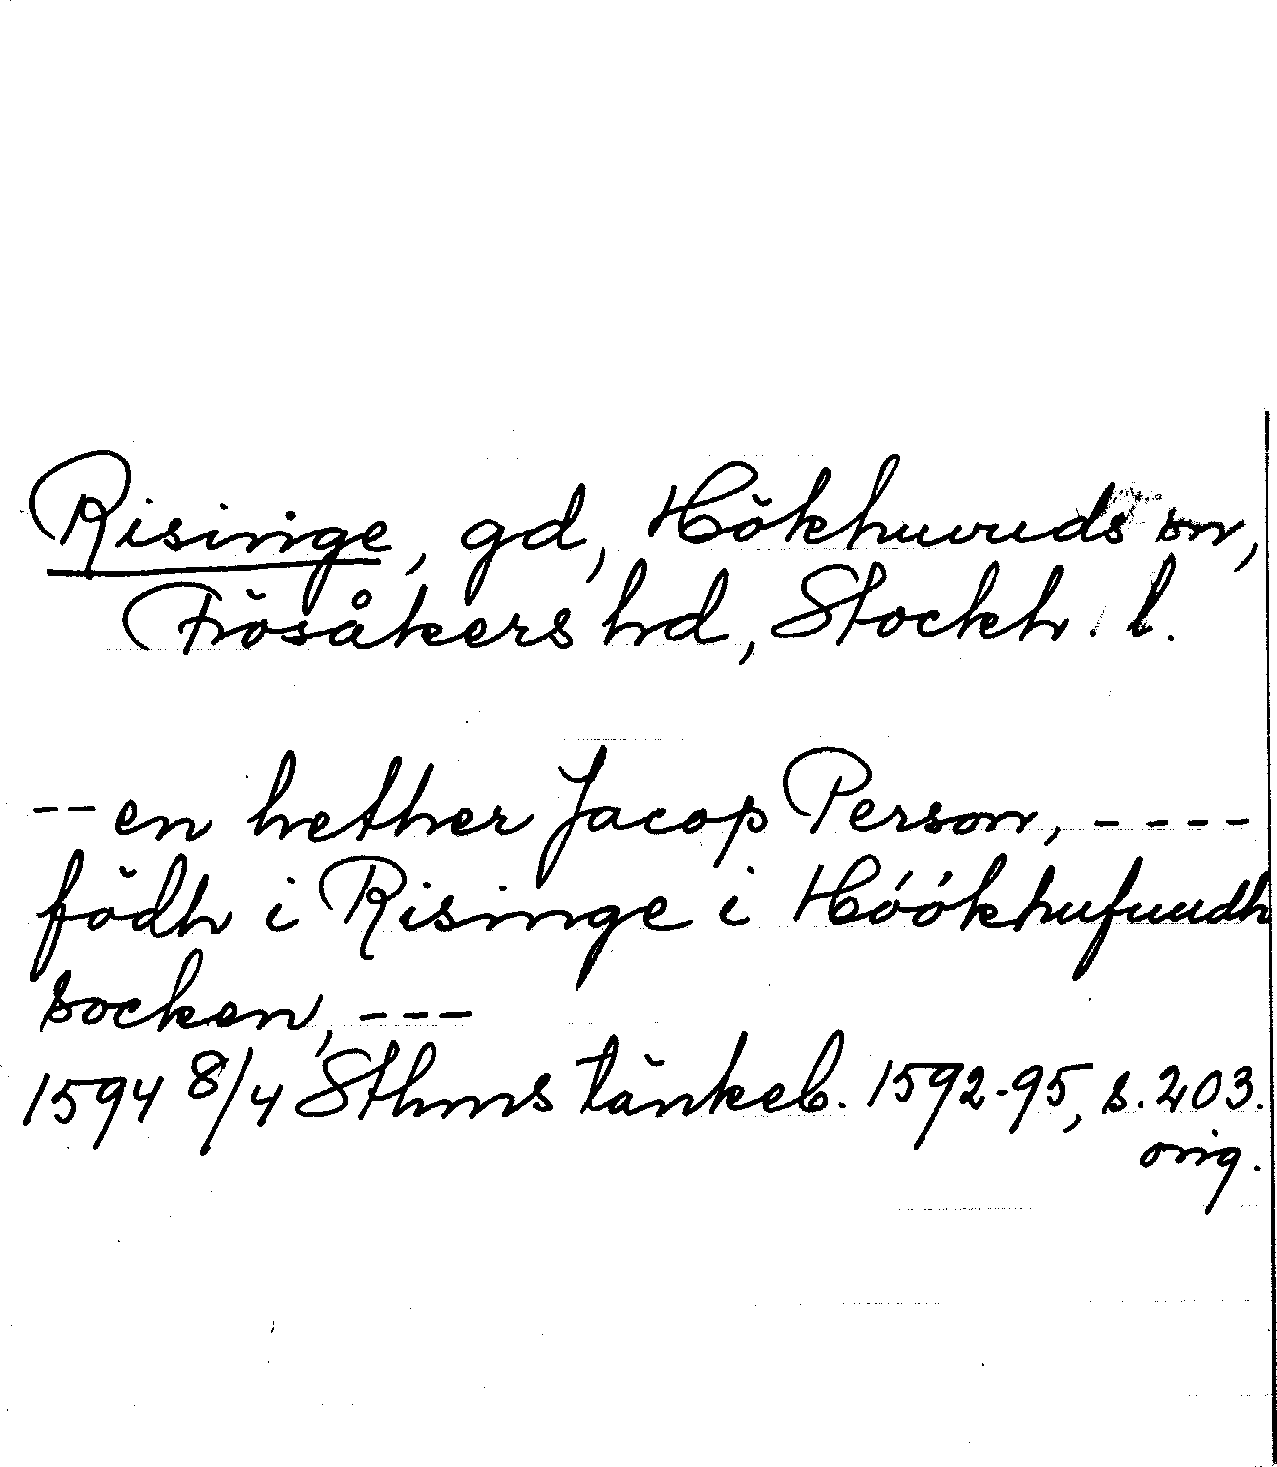 Risinge, gd, Hökhuvuds sn,
Frösåkers hd, Stockh. l.
-- en hether Jacop Person, ----
födh i Risinge i Hóókhufuudh
socken, ---
1594 8/4 Sthms tänkeb. 1592-95, s. 203.
orig.